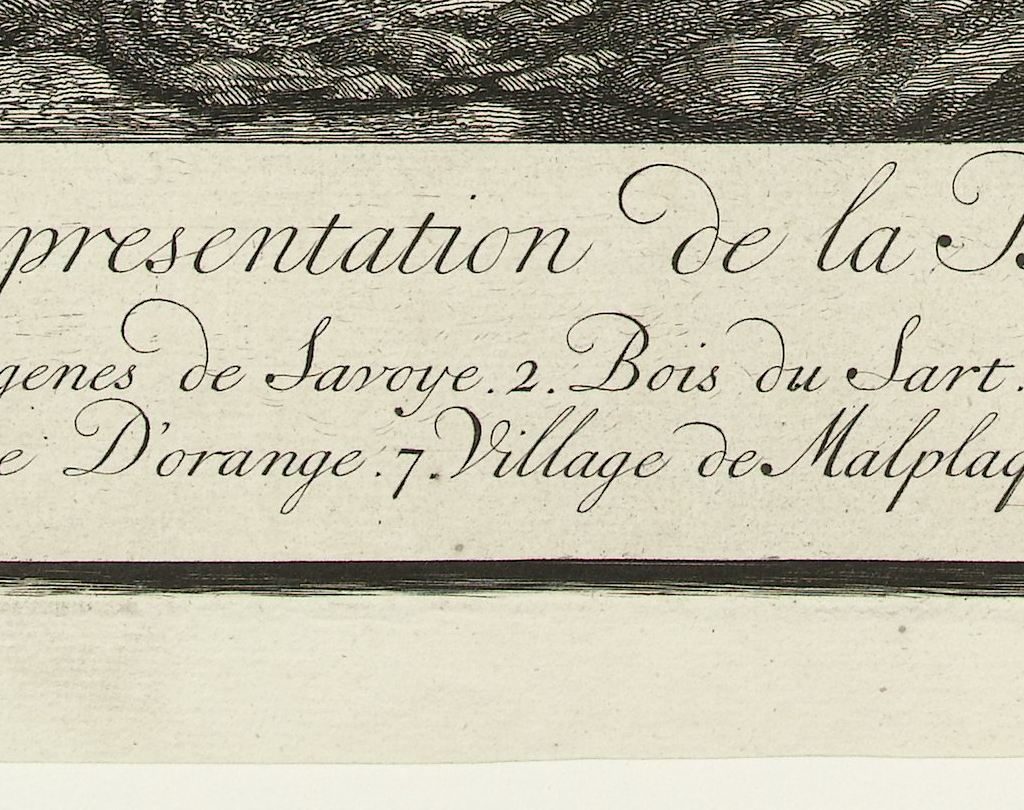 presentation de la B
genes de Savoye. 2. Bois du Sart.
e D'orange. 7. Village de Malplaq